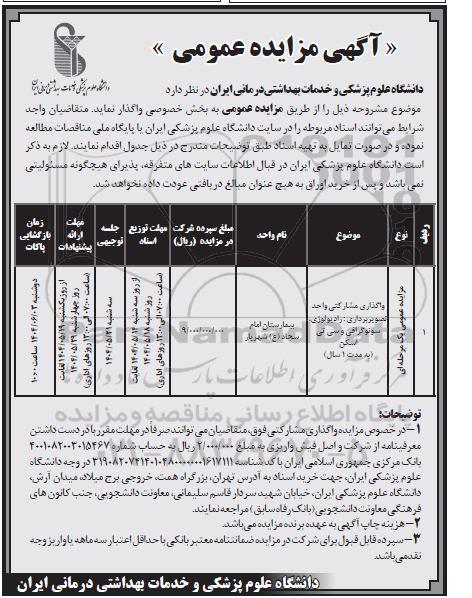 « آگهی مزایده عمومی »
دانشگاه علوم پزشکی و خدمات بهداشتی درمانی ایران
دانشگاه علوم پزشکی و خدمات بهداشتی درمانی ایران در نظر دارد
موضوع مشروحه ذیل را از طریق مزایده عمومی به بخش خصوصی واگذار نماید. متقاضیان واجد
شرایط می‌توانند اسناد مربوطه را در سایت دانشگاه علوم پزشکی ایران یا پایگاه ملی مناقصات مطالعه
نموده و در صورت تمایل به تهیه اسناد طبق توضیحات مندرج در ذیل جدول اقدام نمایند. لازم به ذکر
است دانشگاه علوم پزشکی ایران در قبال اطلاعات سایت های متفرقه، پذیرای هیچگونه مسئولیتی
نمی باشد و پس از خرید اوراق به هیچ عنوان مبالغ دریافتی عودت داده نخواهد شد.
ردیف
نوع
موضوع
نام واحد
مبلغ سپرده شرکت در مزایده (ریال)
مهلت توزیع اسناد
جلسه توجیهی
مهلت ارائه پیشنهادات
زمان بازگشایی پاکات
۱
مزایده عمومی یک مرحله ای
واگذاری مشارکتی واحد
تصویربرداری: رادیولوژی،
سونوگرافی و سی تی
اسکن
(به مدت ۱ سال)
بیمارستان امام
سجاد (ع) شهریار
۹/۰۰۰/۰۰۰/۰۰۰
از روز سه شنبه ۱۴۰۴/۰۵/۱۴ لغایت
روز شنبه ۱۴۰۴/۰۵/۱۸
(ساعت ۰۷:۰۰ الی ۱۳:۰۰ روزهای اداری)
سه شنبه ۱۴۰۴/۰۵/۲۱
از روز یکشنبه ۱۴۰۴/۰۵/۱۹ لغایت
روز چهارشنبه ۱۴۰۴/۰۵/۲۹
(ساعت ۰۷:۰۰ الی ۱۳:۰۰ روزهای اداری)
دوشنبه ۱۴۰۴/۰۶/۰۳ ساعت ۱۰:۰۰
توضیحات:
۱- در خصوص مزایده واگذاری مشارکتی فوق، متقاضیان می توانند صرفا در مهلت مقرر با در دست داشتن
معرفینامه از شرکت و اصل فیش واریزی به مبلغ ۲/۰۰۰/۰۰۰ ریال به حساب شماره ۴۰۰۱۰۸۲۰۰۳۰۱۵۴۶۷
بانک مرکزی جمهوری اسلامی ایران با کد شناسه ۳۱۹۰۸۲۰۷۴۱۴۰۱۰۴۸۰۰۰۰۰۰۰۱۶۱۷۱۱۱ در وجه دانشگاه
علوم پزشکی ایران، جهت خرید اسناد به آدرس تهران، بزرگراه همت، خروجی برج میلاد، میدان آرش،
دانشگاه علوم پزشکی ایران، خیابان شهید سردار قاسم سلیمانی، معاونت دانشجویی، جنب کانون های
فرهنگی معاونت دانشجویی (بانک رفاه سابق) مراجعه نمایند.
۲- هزینه چاپ آگهی به عهده برنده مزایده می باشد.
۳- سپرده قابل قبول برای شرکت در مزایده ضمانتنامه معتبر بانکی با حداقل اعتبار سه ماهه یا واریز وجه
نقد می باشد.
دانشگاه علوم پزشکی و خدمات بهداشتی درمانی ایران